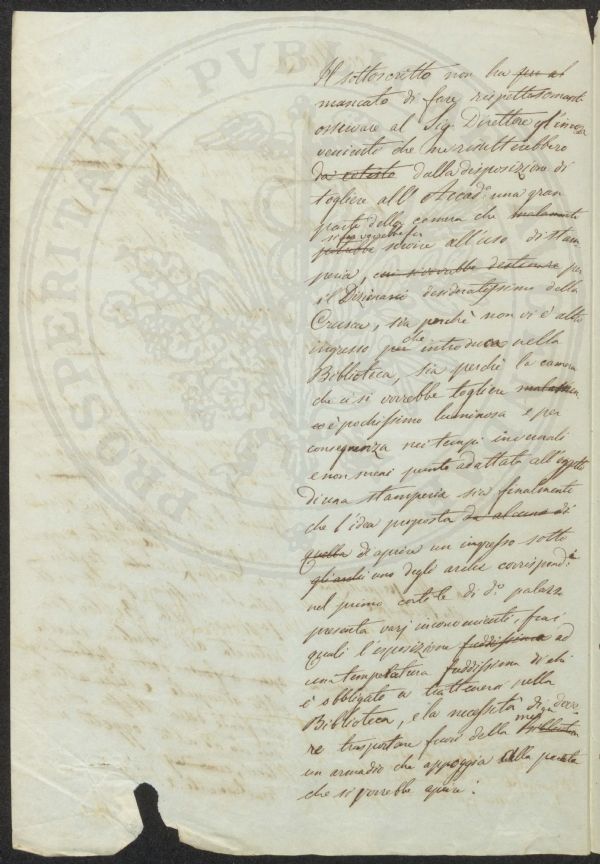 Il sottoscritto non ha per al
mancato di fare rispettosamente
osservare al Sig. Direttore gl'incon
venienti che ne risulterebbero
dalla disposizione di
togliere all'Accad.ª una gran
parte della camera che
si vorrebbe far
potrebbe servire all'uso di stam
peria, cui si vorrebbe destinare per
il Dizionario desideratissimo della
Crusca, sia perchè non vi è altro
ingresso per che introduca nella
Biblioteca, sia perchè la camera
che ci si vorrebbe togliere
è pochissimo luminosa e per
conseguenza nei tempi invernali
e non meni punto adattata all'oggetto
di una stamperia sia finalmente
che l'idea proposta da alcuno di
quella di aprire un ingresso sotto
gli archi uno degli archi corrispond.ti
nel primo cortile di d.º palazzo
presenta varj inconvenienti, frai
quali l'esposizione freddissima ad
una temperatura freddissima di chi
è obbligato a trattenersi nella
Biblioteca, e la necessità di dove
re trasportare fuori della med.ª Biblioteca
un armadio che appoggia alla parete
che si vorrebbe aprire.